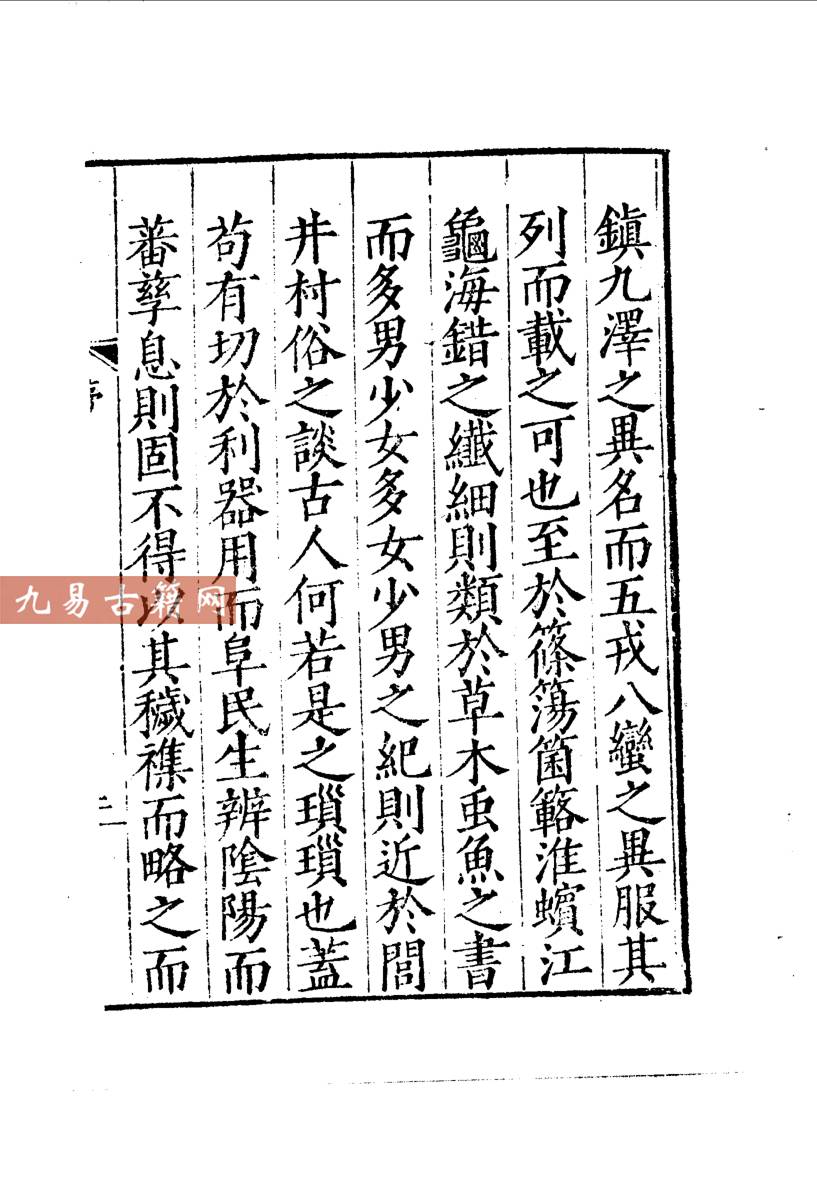 鎮九澤之異名而五戎八蠻之異服其
列而載之可也至於篠簜箘簵淮蠙江
龜海錯之纖細則類於草木虫魚之書
而多男少女多女少男之紀則近於閭
井村俗之談古人何若是之瑣瑣也蓋
茍有切於利器用而阜民生辨陰陽而
蕃孳息則固不得以其穢襍而略之而
序
二
九易古籍网